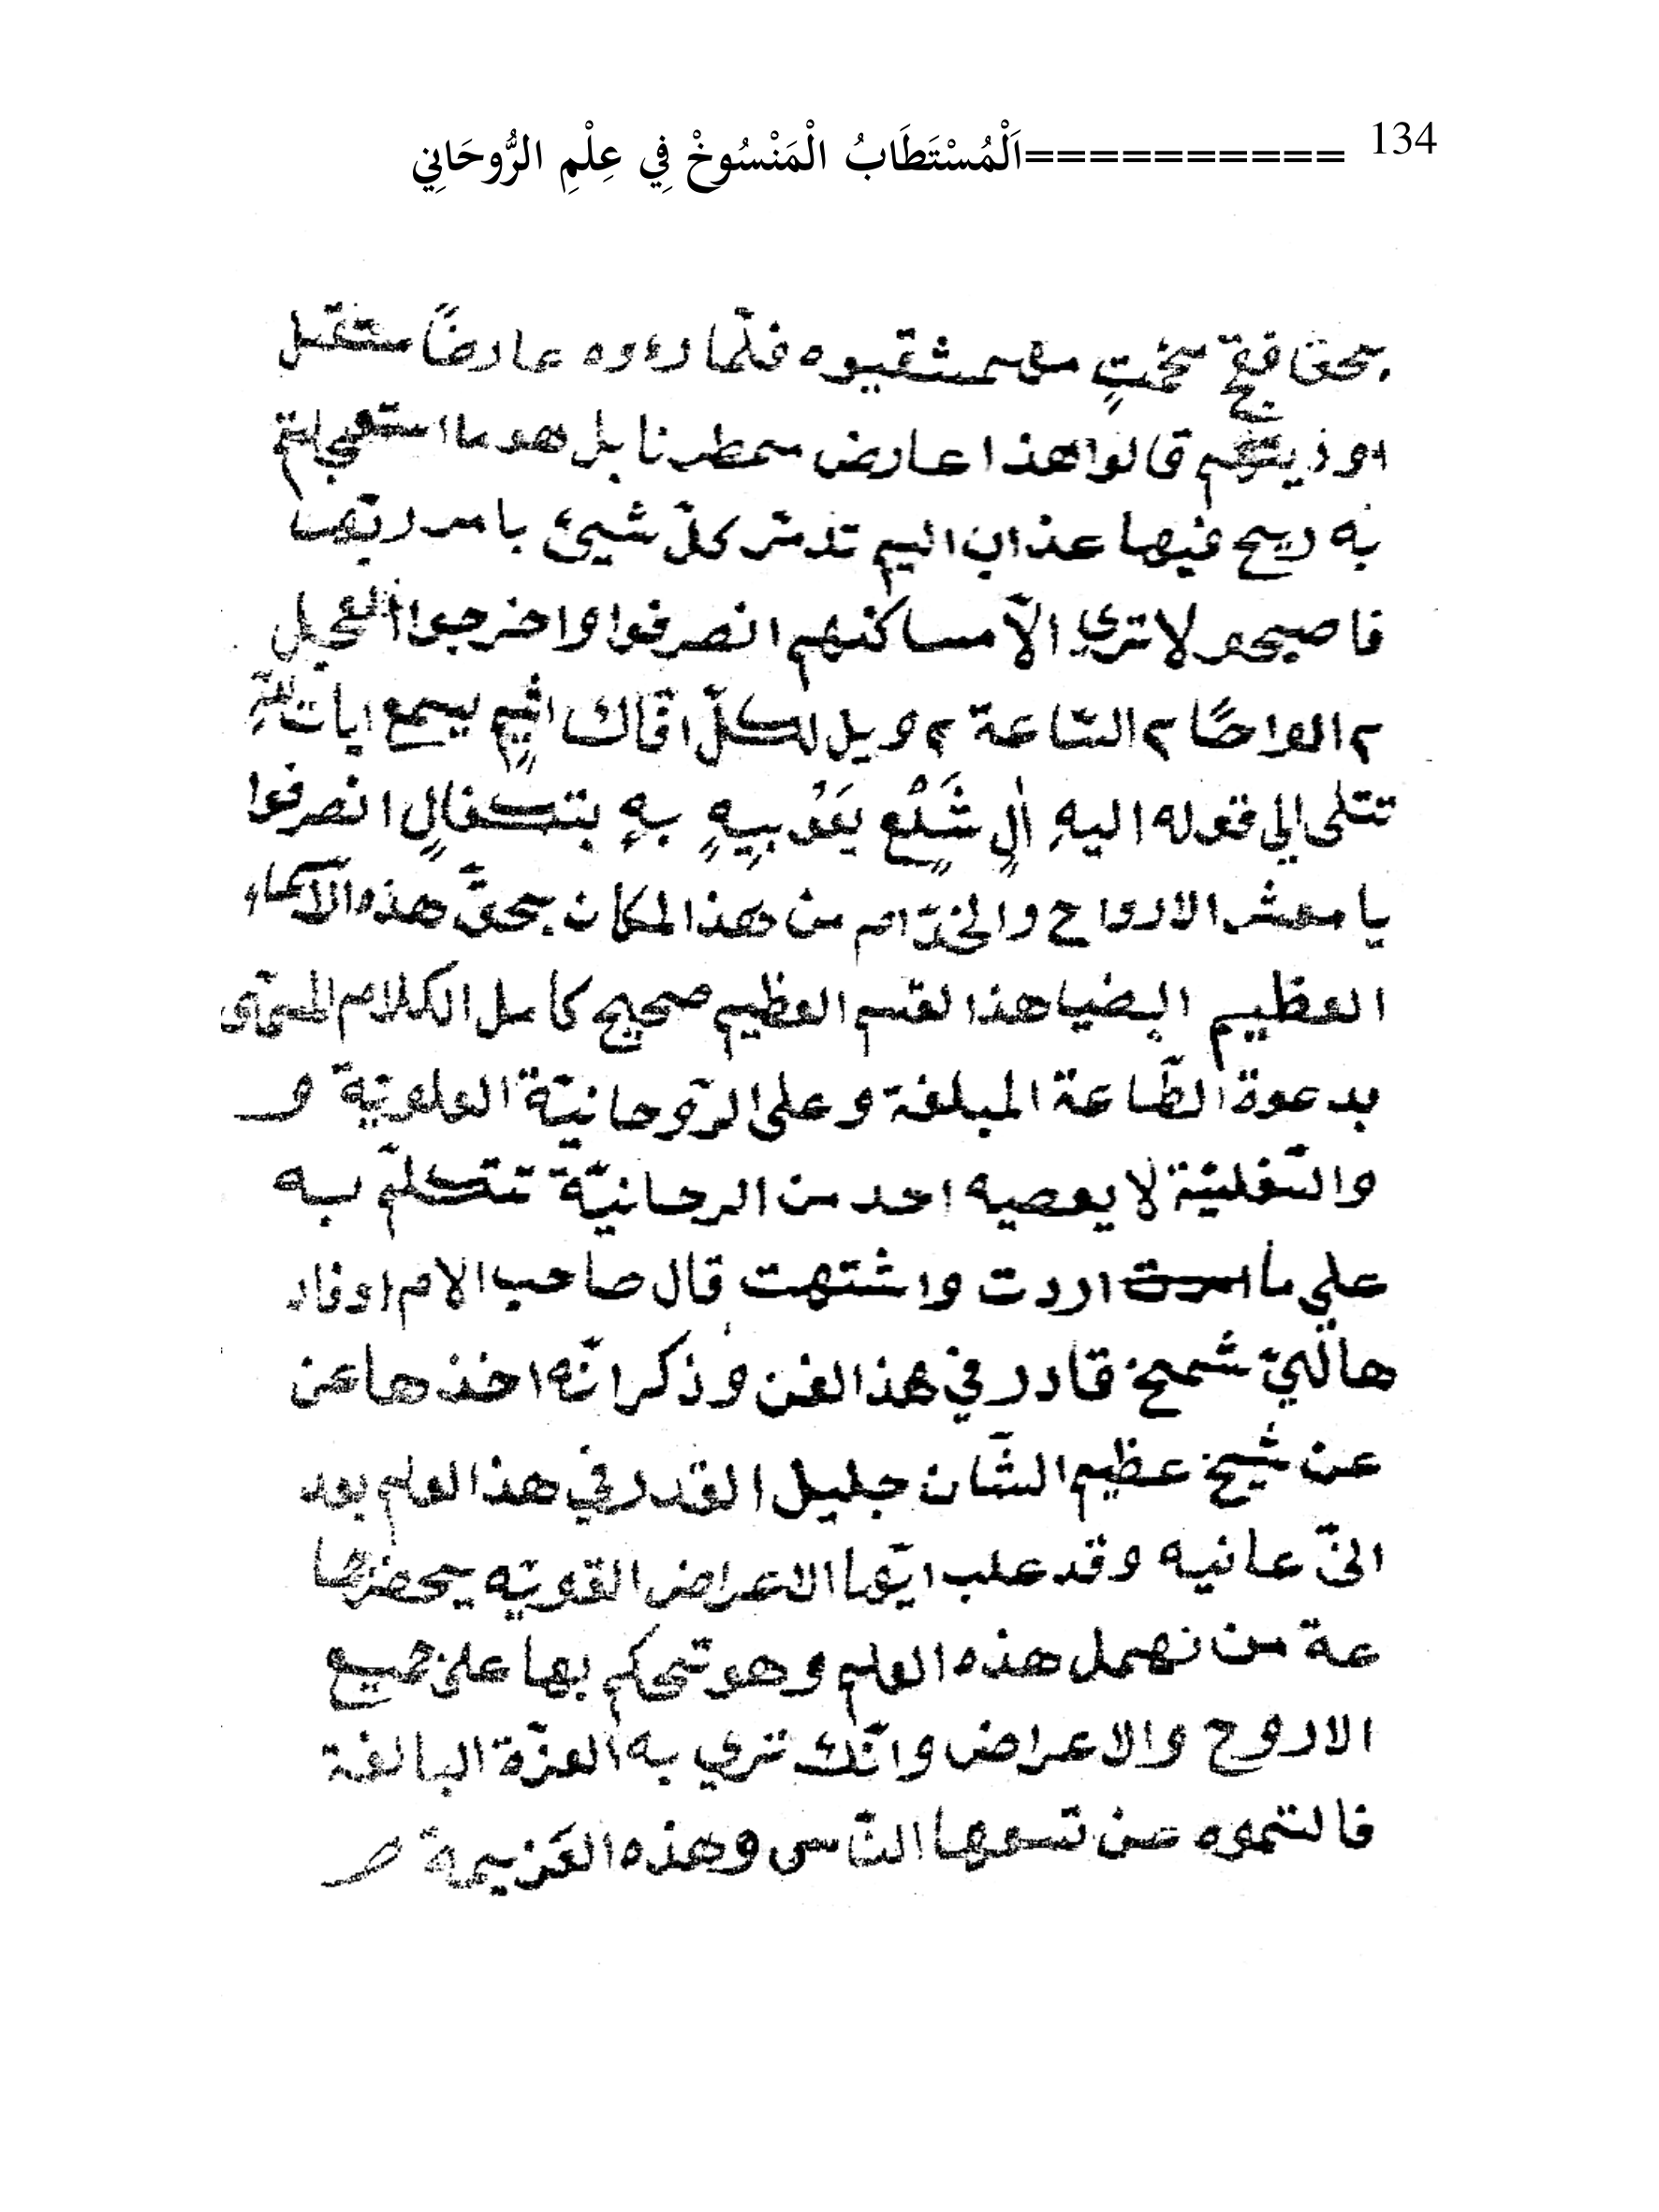 134 ==========اَلْمُسْتَطَابُ الْمَنْسُوخْ فِي عِلْمِ الرُّوحَانِي
بحق فلمّا رءوه عارضًا مستقبل
اوديتهم قالوا هذا عارض ممطرنا بل هو ما استعجلتم
به ريح فيها عذاب اليم تدمّر كلّ شيئ بامر ربّها
فاصبحو لا تري الاّ مساكنهم انصرفوا واخرجوا العجل
٢ الواحًا ٢ السّاعة ٢ ويل لكلّ افّاك اثيم يسمع ايات اللّه
تتلى الي قوله اليهِ الٍ شَلْعٍ يَعْوُ بِيهٍ بهٍ بتكفالٍ انصرفوا
يا معشر الارواح والخدّام من هذا المكان بحقّ هذه الاسماء
العظيم ايضيا هذا لقسم العظيم صحيح كامل الكلام المسمّى
بدعوة الطّاعة المبلغة وعلى الرّوحانيّة العلويّة و
والسّفليّة لا يعصيه احد من الرحانيّة تتكلّم به
علي ما اردت واشتهت قال صاحب الام اوفاد
هالّيّ شمخ قادر في هذا الفن وذكر انّه اخذها عن
عن شيخ عظيم الشّان جليل القدر في هذا العلم بعد
انّي عانيه وقد علب ايّها الاعراض القويّه يحضرها
عة من نهمل هذه العلم وهو تحكم بها على جميع
الاروح والاعراض وانّك تري به العزّة البالغة
فالتموه عن تسعها النّاس وهذه العَزيمة